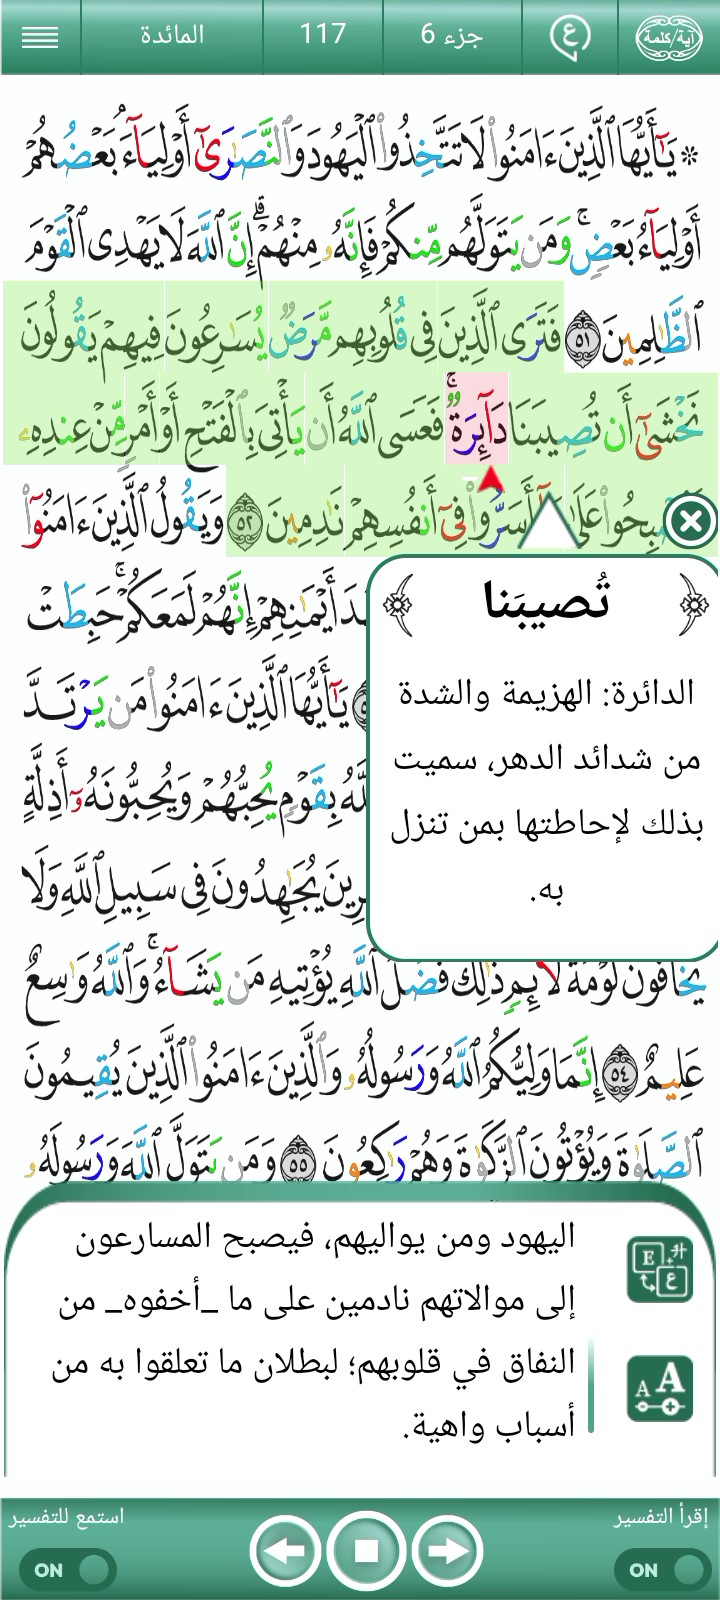 آية/كلمة
ع
جزء 6
117
المائدة
* يَٰٓأَيُّهَا ٱلَّذِينَ ءَامَنُوا۟ لَا تَتَّخِذُوا۟ ٱلْيَهُودَ وَٱلنَّصَٰرَىٰٓ أَوْلِيَآءَ ۘ بَعْضُهُمْ
أَوْلِيَآءُ بَعْضٍ ۚ وَمَن يَتَوَلَّهُم مِّنكُمْ فَإِنَّهُۥ مِنْهُمْ ۗ إِنَّ ٱللَّهَ لَا يَهْدِى ٱلْقَوْمَ
ٱلظَّٰلِمِينَ ٥١ فَتَرَى ٱلَّذِينَ فِى قُلُوبِهِم مَّرَضٌ يُسَٰرِعُونَ فِيهِمْ يَقُولُونَ
نَخْشَىٰٓ أَن تُصِيبَنَا دَآئِرَةٌ ۚ فَعَسَى ٱللَّهُ أَن يَأْتِىَ بِٱلْفَتْحِ أَوْ أَمْرٍ مِّنْ عِندِهِۦ
عَلَىٰ أَسَرُّوا۟ فِىٓ أَنفُسِهِمْ نَٰدِمِينَ ٥٢ وَيَقُولُ ٱلَّذِينَ ءَامَنُوٓا۟
أَيْمَٰنِهِمْ ۙ إِنَّهُمْ لَمَعَكُمْ ۚ حَبِطَتْ
يَٰٓأَيُّهَا ٱلَّذِينَ ءَامَنُوا۟ مَن يَرْتَدَّ
بِقَوْمٍ يُحِبُّهُمْ وَيُحِبُّونَهُۥٓ أَذِلَّةٍ
يُجَٰهِدُونَ فِى سَبِيلِ ٱللَّهِ وَلَا
يَخَافُونَ لَوْمَةَ لَآئِمٍ ۚ ذَٰلِكَ فَضْلُ ٱللَّهِ يُؤْتِيهِ مَن يَشَآءُ ۚ وَٱللَّهُ وَٰسِعٌ
عَلِيمٌ ٥٤ إِنَّمَا وَلِيُّكُمُ ٱللَّهُ وَرَسُولُهُۥ وَٱلَّذِينَ ءَامَنُوا۟ ٱلَّذِينَ يُقِيمُونَ
ٱلصَّلَوٰةَ وَيُؤْتُونَ ٱلزَّكَوٰةَ وَهُمْ رَٰكِعُونَ ٥٥ وَمَن يَتَوَلَّ ٱللَّهَ وَرَسُولَهُۥ
تُصيبَنا
الدائرة: الهزيمة والشدة
من شدائد الدهر، سميت
بذلك لإحاطتها بمن تنزل
به.
اليهود ومن يواليهم، فيصبح المسارعون
إلى موالاتهم نادمين على ما _أخفوه_ من
النفاق في قلوبهم؛ لبطلان ما تعلقوا به من
أسباب واهية.
إقرأ التفسير
ON
استمع للتفسير
ON